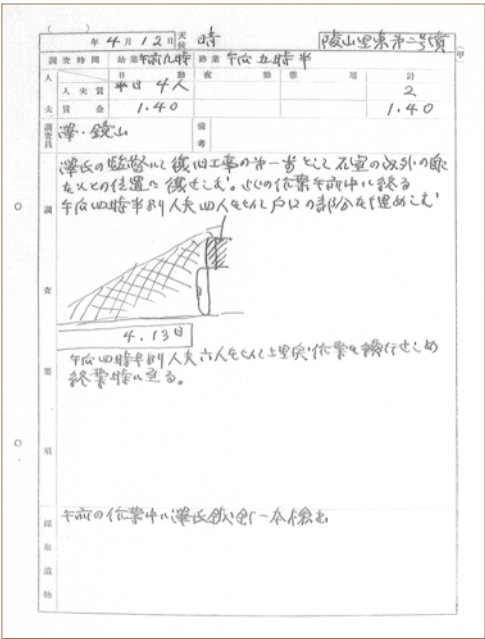 年 4月 12日 天候 晴 陵山里東第二号墳
調査時間 始業 午前九時 終業 午后五時半
人夫 人夫賃 日勤 夜勤 計
本日 4人 2
賃金 1.40 1.40
調査員 澤・鏡山 備考
調査要項
澤氏の監督にて復旧工事の第一歩として石室の以外の
を人との位置に復せしむ。この作業午前中に終る
午后四時半より人夫四人をして戸口の部分を埋めこむ
4.13日
午后四時半より人夫六人をして土里戻作業を続行せしめ
終業時に至る。
採取遺物
午前の作業中に澤氏鉄釘一本検出